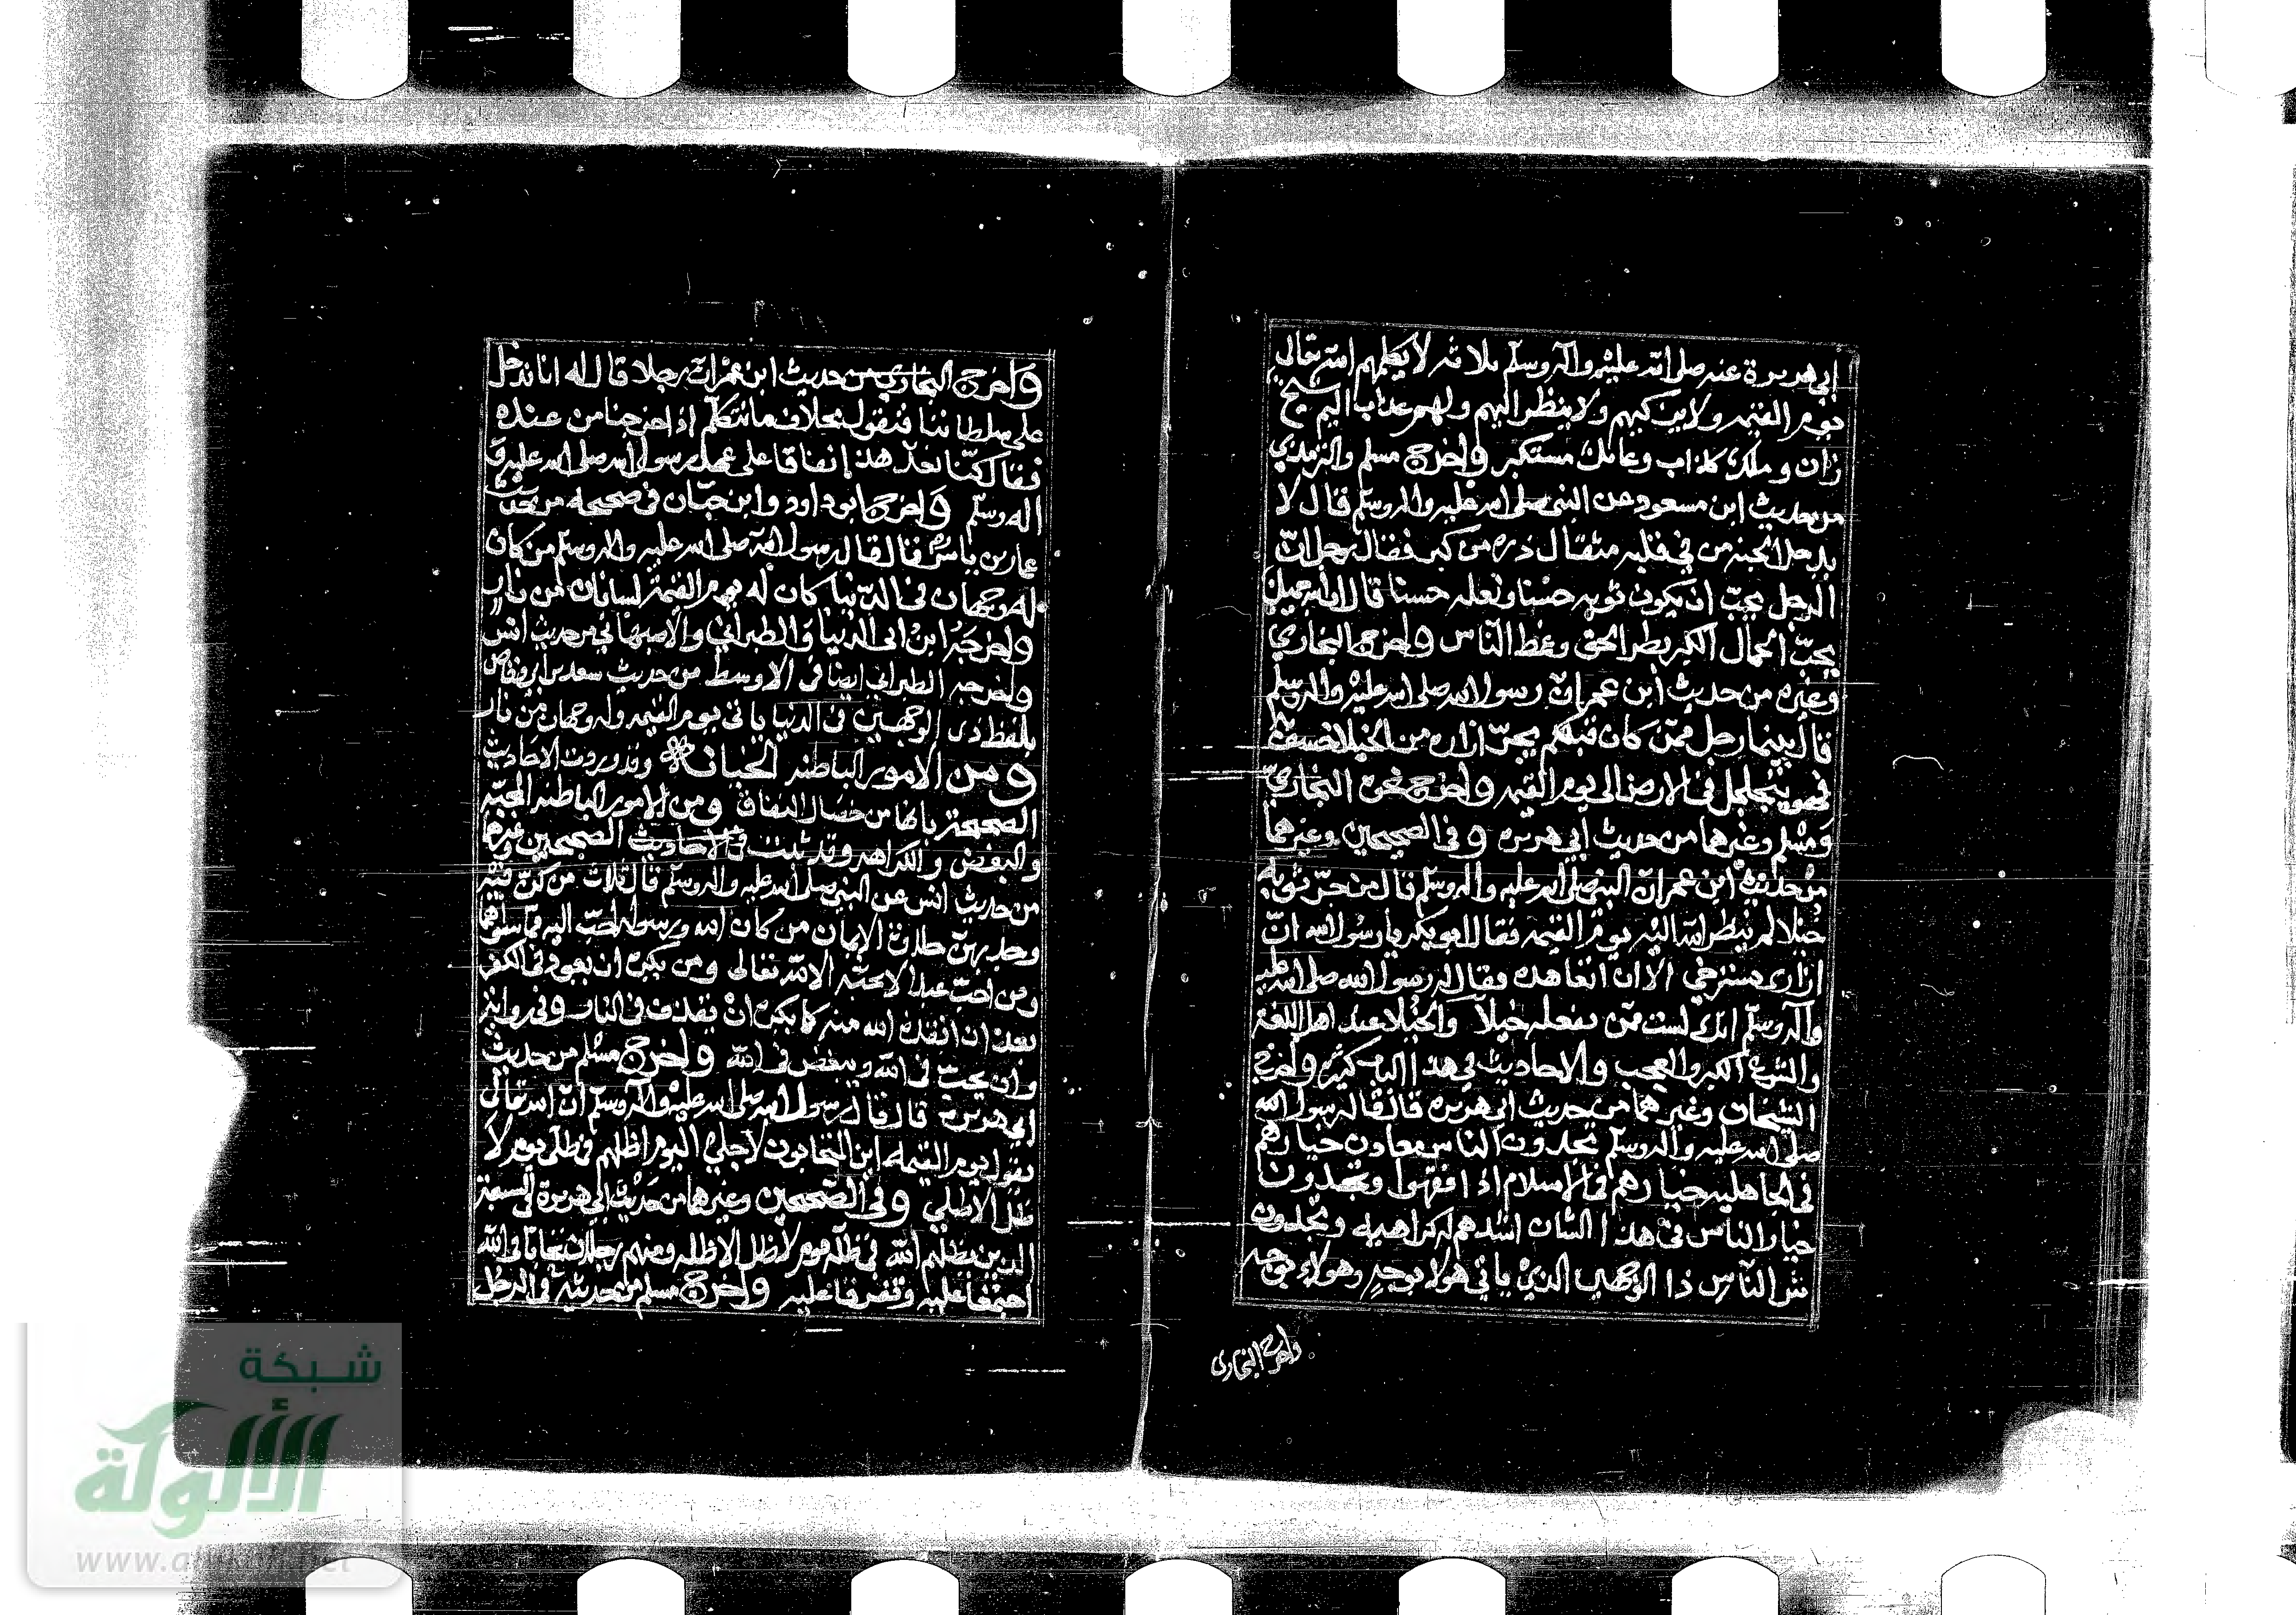 ابي هريرة عنه صلى الله عليه واله وسلم ثلاثة لا يكلمهم الله تعالى
يوم القيمه ولا يزكيهم ولا ينظر اليهم ولهم عذاب اليم شيخ
زان وملك كذاب وعائل مستكبر واخرج مسلم والترمذي
من حديث ابن مسعود عن النبي صلى الله عليه واله وسلم قال لا
يدخل الجنة من في قلبه مثقال ذره من كبر فقال رجل ان
الرجل يحب ان يكون ثوبه حسنا ونعله حسنا قال ان الله جميل
يحب الجمال الكبر بطر الحق وغمط الناس واخرج البخاري
وغيره من حديث ابن عمر ان رسول الله صلى الله عليه واله وسلم
قال بينما رجل ممن كان قبلكم يجر ازاره من الخيلا خسف
فهو يتجلجل في الارض الى يوم القيمه واخرج نحوه البخاري
ومسلم وغيرهما من حديث ابي هريره وفي الصحيحين وغيرهما
من حديث ابن عمر ان النبي صلى الله عليه واله وسلم قال من جر ثوبه
خيلا لم ينظر الله اليه يوم القيمه فقال ابو بكر يا رسول الله ان
ازارى يسترخي الا ان اتعاهده فقال له رسول الله صلى الله عليه
واله وسلم انك لست ممن يفعله خيلا والخيلا عند اهل اللغة
والشرع الكبر والعجب والاحاديث في هذا الباب كثيره واخرج
الشيخان وغيرهما من حديث ابي هريره قال قال رسول الله
صلى الله عليه واله وسلم تجدون الناس معادن خيارهم
في الجاهليه خيارهم في الاسلام اذا افقهوا وتجدون
خيار الناس في هذا الشان اشدهم له كراهيه وتجدون
شر الناس ذا الوجهين الذي ياتي هولاء بوجه وهولاء بوجه
واخرج البخارى
واخرج البخارى من حديث ابن عمر ان رجلا قال له انا ندخل
على سلطاننا فنقول بخلاف ما نتكلم اذا خرجنا من عنده
فقال كنا نعد هذا نفاقا على عهد رسول الله صلى الله عليه و
اله وسلم واخرج ابو داود وابن حبان في صحيحه من حديث
عمار بن ياسر قال قال رسول الله صلى الله عليه واله وسلم من كان
له وجهان في الدنيا كان له يوم القيمة لسانان من نار
واخرجه ابن ابى الدنيا والطبراني والاصبهاني من حديث انس
واخرجه الطبراني ايضا في الاوسط من حديث سعد بن ابي وقاص
بلفظ ذى الوجهين في الدنيا ياتي يوم القيمه وله وجهان من نار
ومن الامور الباطنه الخيانه وقد وردت الاحاديث
الصحيحة بانها من خصال النفاق ومن الامور الباطنه المحبه
والبغض والكراهه وقد ثبت في الاحاديث الصحيحين وغيرهما
من حديث انس عن النبي صلى الله عليه واله وسلم قال ثلاث من كن فيه
وجد بهن حلاوة الايمان من كان الله ورسوله احب اليه مما سواهما
ومن احب عبدا لا يحبه الا لله تعالى ومن يكره ان يعود في الكفر
بعد ان انقذه الله منه كما يكره ان يقذف في النار وفي رواية
وان يحب في الله ويبغض في الله واخرج مسلم من حديث
ابي هريرة قال قال رسول الله صلى الله عليه واله وسلم ان الله تعالى
يقول يوم القيمه اين المتحابون لاجلي اليوم اظلهم في ظلي يوم لا
ظل الا ظلي وفي الصحيحين وغيرهما من حديث ابي هريرة في السبعة
الذين يظلهم الله في ظله يوم لا ظل الا ظله ومنهم رجلان تحابا في الله
اجتمعا عليه وتفرقا عليه واخرج مسلم من حديثه في الرجل
شبكة
الألوكة
www.alukah.net